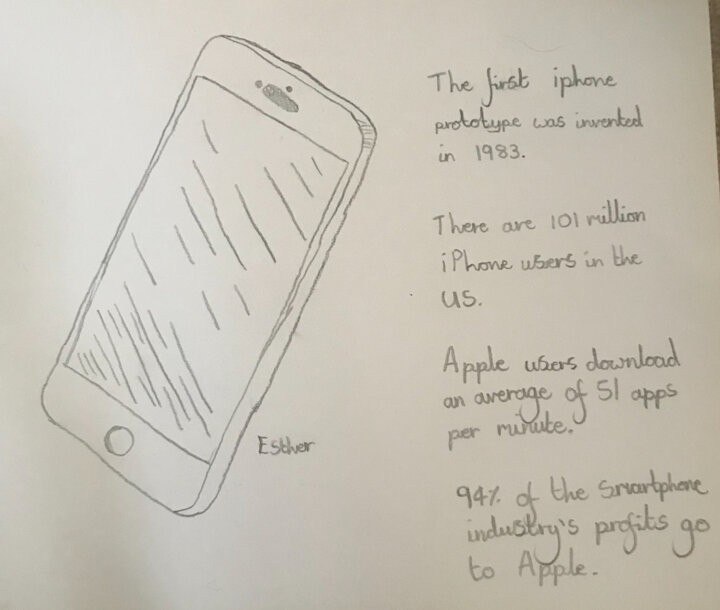 The first iphone
prototype was invented
in 1983.
There are 101 million
iPhone users in the
US.
Apple users download
an average of 51 apps
per minute.
94% of the smartphone
industry's profits go
to Apple.
Esther